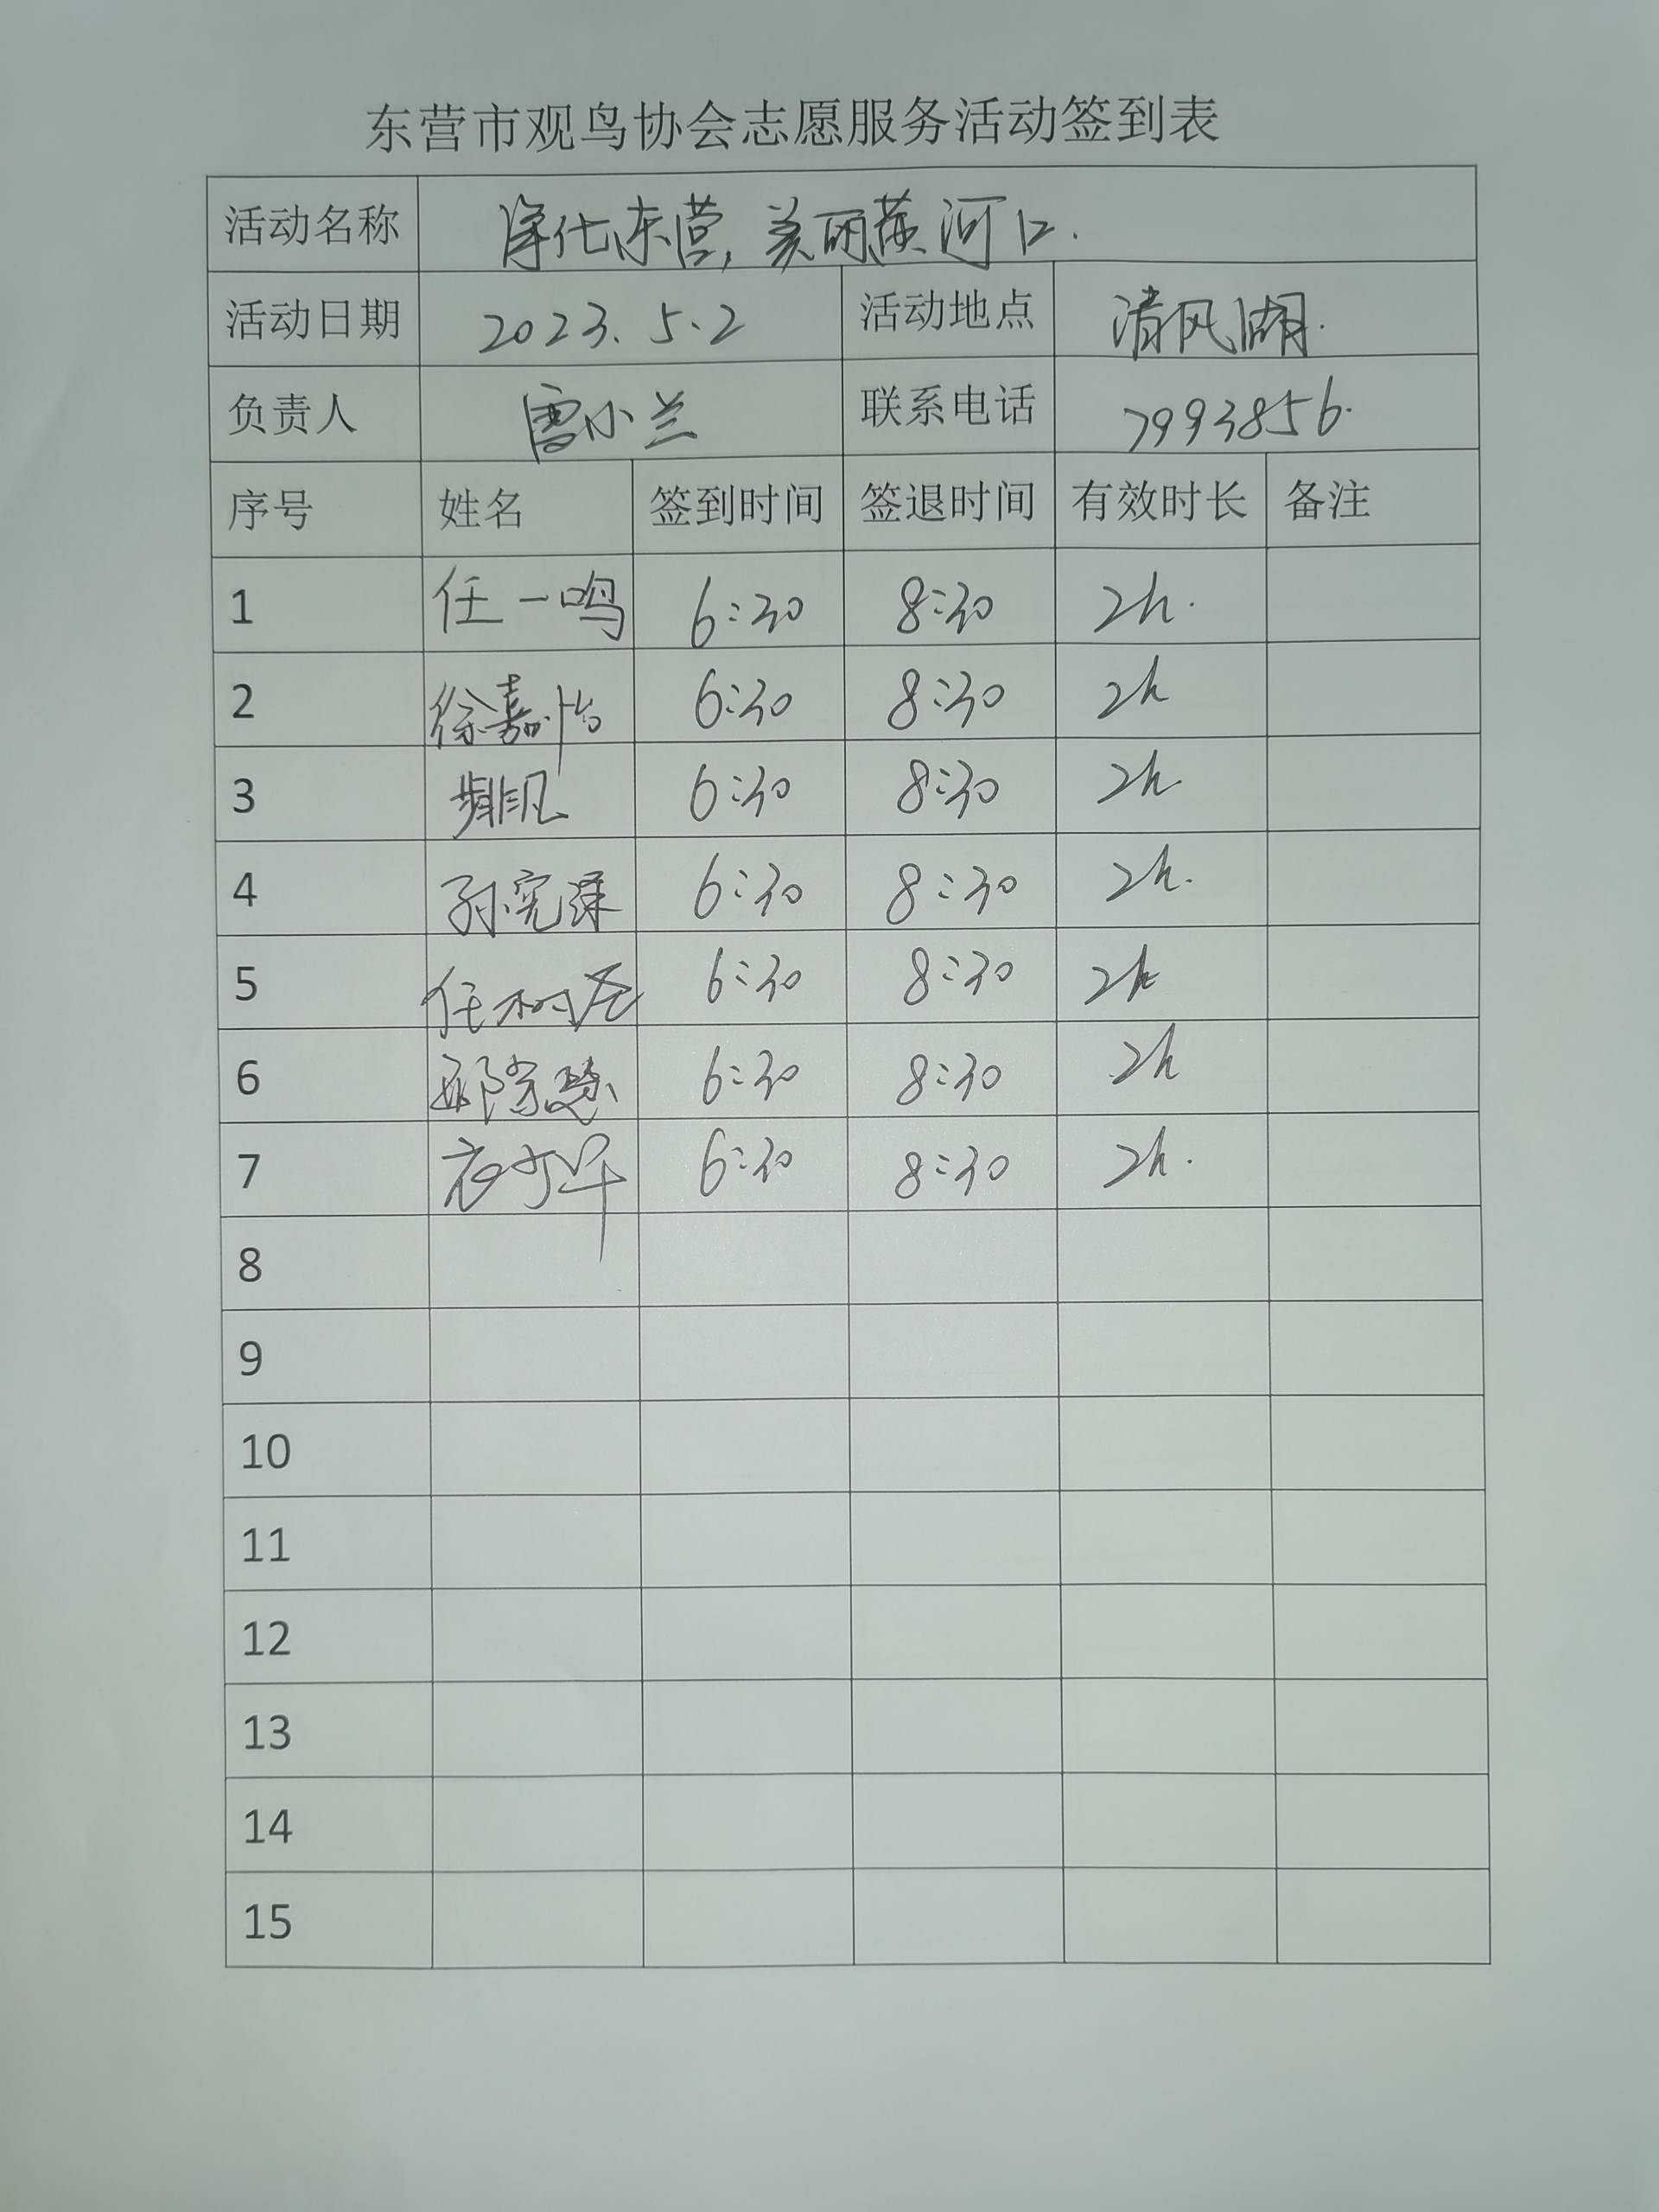 东营市观鸟协会志愿服务活动签到表
活动名称 净化东营,美丽黄河口.
活动日期 2023.5.2 活动地点 清风湖.
负责人 曹小兰 联系电话 7993856.
序号 姓名 签到时间 签退时间 有效时长 备注
1 任一鸣 6:30 8:30 2h.
2 徐嘉怡 6:30 8:30 2h
3 6:30 8:30 2h
4 孙宪泽 6:30 8:30 2h.
5 任树 6:30 8:30 2h
6 慧 6:30 8:30 2h
7 6:30 8:30 2h.
8
9
10
11
12
13
14
15